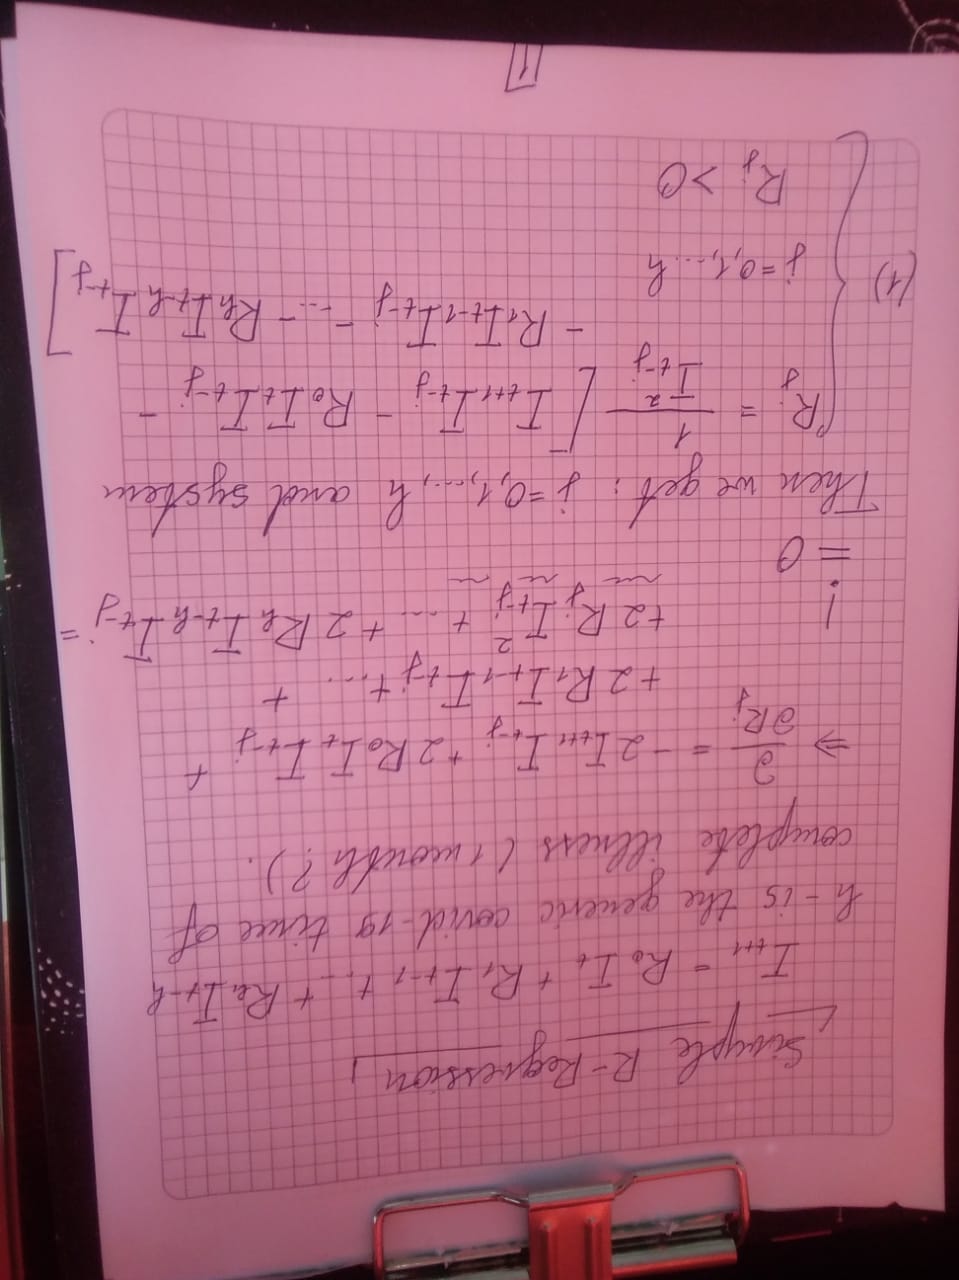 Simple R-Regression
I_{t+1} = R_0 I_t + R_1 I_{t-1} + ... + R_h I_{t-h}
h - is the generic covid-19 time of
complete illness (1 month?).
⇒ ∂/∂R_j = -2 I_{t+1} I_{t-j} + 2 R_0 I_t I_{t-j} +
+ 2 R_1 I_{t-1} I_{t-j} + ... +
+ 2 R_j I_{t-j}^2 + ... + 2 R_h I_{t-h} I_{t-j} =
! = 0
Then we get: j = 0, 1, ..., h and system
R_j = 1/I_{t-j}^2 [ I_{t+1} I_{t-j} - R_0 I_t I_{t-j} -
- R_1 I_{t-1} I_{t-j} - ... - R_h I_{t-h} I_{t-j} ]
(1) j = 0, 1, ... h
R_j > 0
1